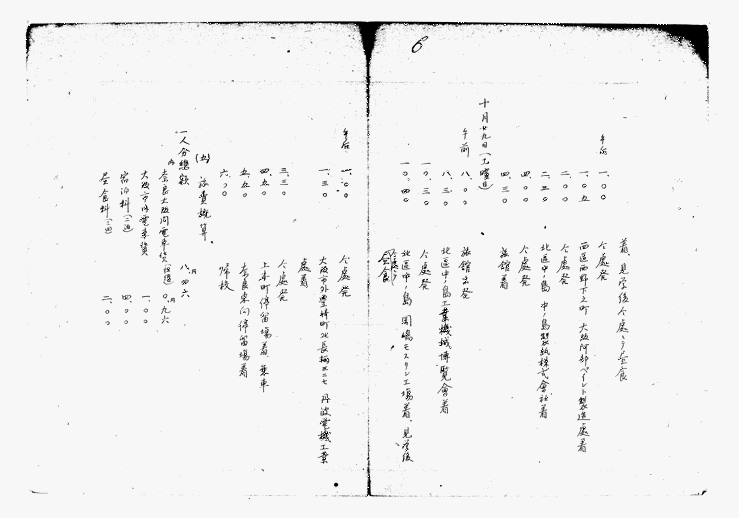 6
着、見学後全處ニテ昼食
午后 一.〇〇 仝處発
一.〇五 西區西野下之町 大阪阿部ペイント製造處着
二.〇〇 仝處発
二.三〇 北區中ノ島 中ノ島製紙株式會社着
四.〇〇 仝處発
四.三〇 旅館着
十月廿九日(土曜日)
午前 八.〇〇 旅館出発
八.三〇 北區中ノ島工業機械博覧會着
一〇.三〇 仝處発
一〇.四〇 北區中ノ島 モスリン工場着、見学後
仝處ニテ昼食
午后 一.〇〇 仝處発
一.三〇 大阪市外豊崎町北長柄 丹波電機工業
處着
三.三〇 仝處発
四.五〇 上本町停留場着 乗車
五.五〇 奈良東向停留場着
六.〇〇 帰校
(五) 旅費概算、
一人分総額 八円四六
内 奈良大阪間電車賃(往復) 〇円九六
大阪市内電車賃 一.〇〇
宿泊料(二泊) 四.〇〇
昼食料(二回) 二.〇〇